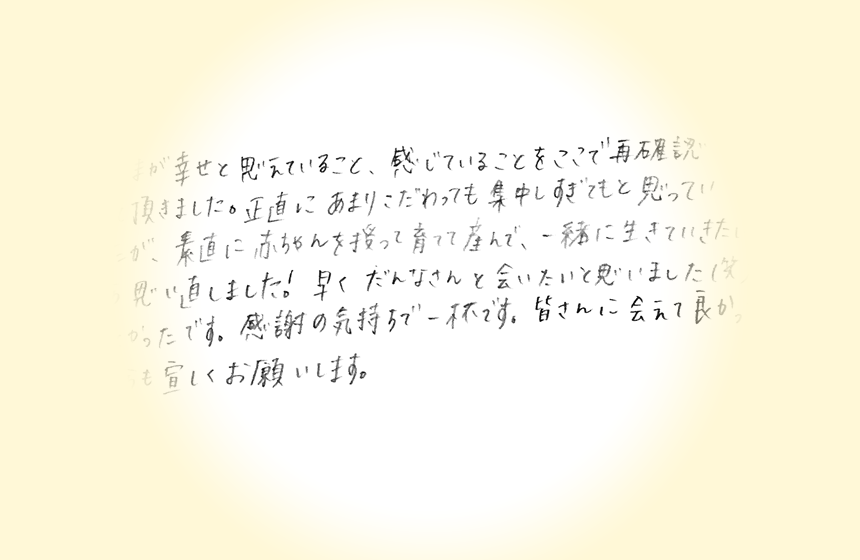 が幸せと思えていること、感じていることをここで再確認
頂きました。正直にあまりこだわっても集中しすぎてもと思ってい
が、素直に赤ちゃんを授って育てて産んで、一緒に生きていきた
思い直しました!早くだんなさんと会いたいと思いました(笑
かったです。感謝の気持ちで一杯です。皆さんに会えて良かっ
も宜しくお願いします。